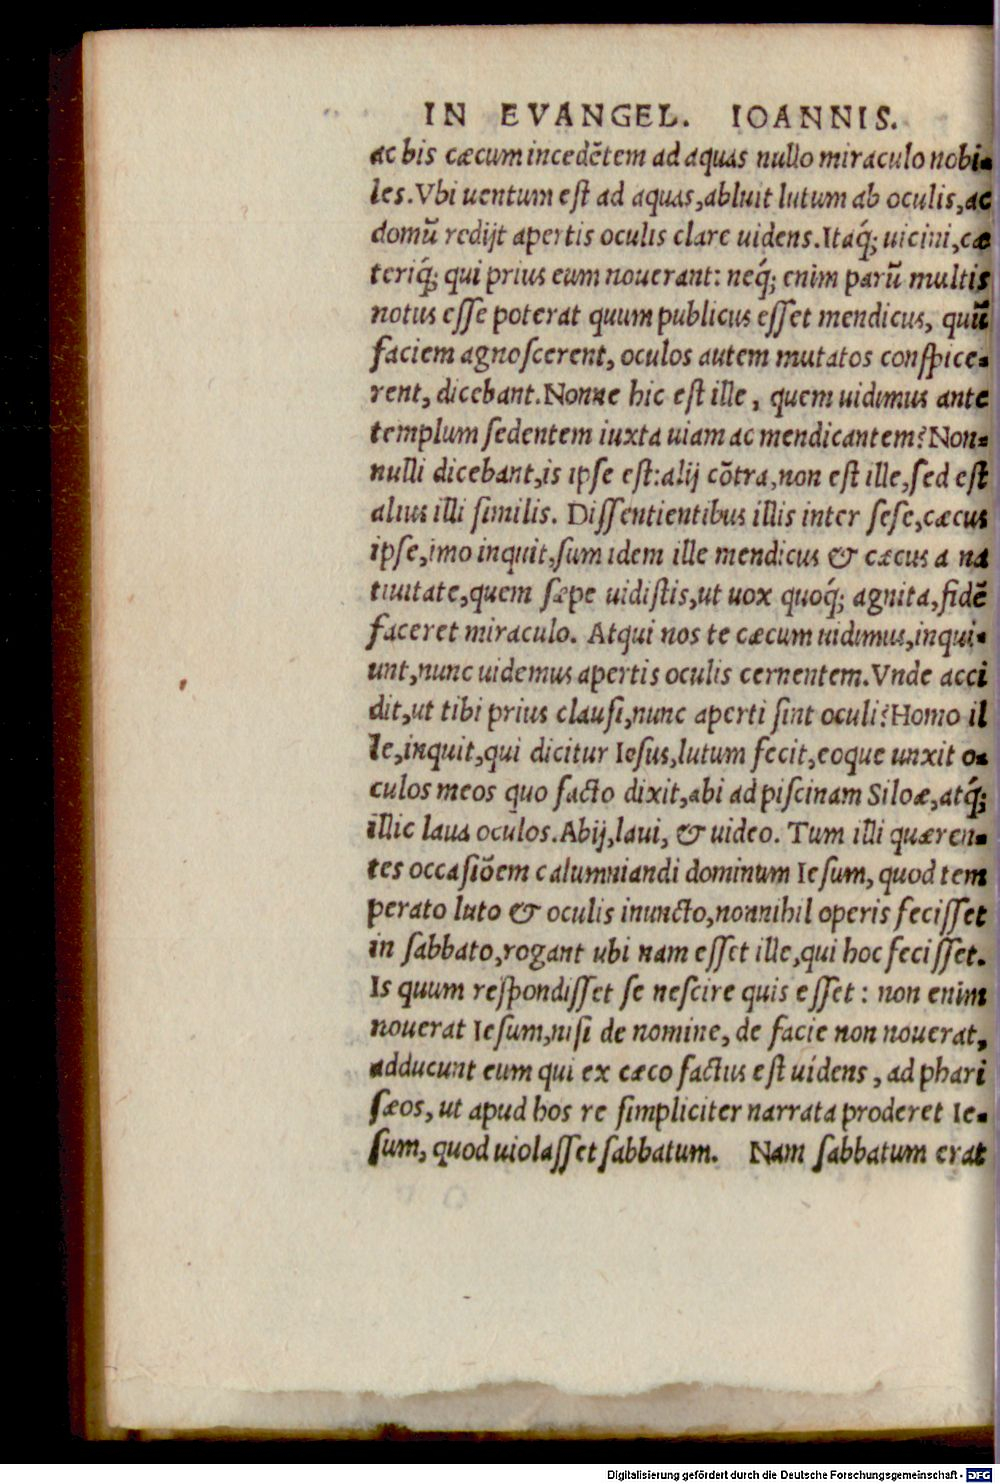 IN EVANGEL. IOANNIS.
ac bis cæcum incedẽtem ad aquas nullo miraculo nobi-
les. Vbi uentum est ad aquas, abluit lutum ab oculis, ac
domũ redijt apertis oculis clare uidens. Itaq́; uicini, cæ
teriq́; qui prius eum nouerant: neq́; enim parũ multis
notus esse poterat quum publicus esset mendicus, quũ
faciem agnoscerent, oculos autem mutatos conspice-
rent, dicebant. Nonne hic est ille, quem uidimus ante
templum sedentem iuxta uiam ac mendicantem? Non-
nulli dicebant, is ipse est: alij cõtra, non est ille, sed est
alius illi similis. Dissentientibus illis inter sese, cæcus
ipse, imo inquit, sum idem ille mendicus & cæcus a na
tiuitate, quem sæpe uidistis, ut uox quoq́; agnita, fidẽ
faceret miraculo. Atqui nos te cæcum uidimus, inqui-
unt, nunc uidemus apertis oculis cernentem. Vnde acci
dit, ut tibi prius clausi, nunc aperti sint oculi? Homo il
le, inquit, qui dicitur Iesus, lutum fecit, eoque unxit o-
culos meos quo facto dixit, abi ad piscinam Siloæ, atq́;
illic laua oculos. Abij, laui, & uideo. Tum illi quæren-
tes occasiõem calumniandi dominum Iesum, quod tem
perato luto & oculis inuncto, nonnihil operis fecisset
in sabbato, rogant ubi nam esset ille, qui hoc fecisset.
Is quum respondisset se nescire quis esset: non enim
nouerat Iesum, nisi de nomine, de facie non nouerat,
adducunt eum qui ex cæco factus est uidens, ad phari
sæos, ut apud hos re simpliciter narrata proderet Ie-
sum, quod uiolasset sabbatum. Nam sabbatum erat
Digitalisierung gefördert durch die Deutsche Forschungsgemeinschaft - DFG